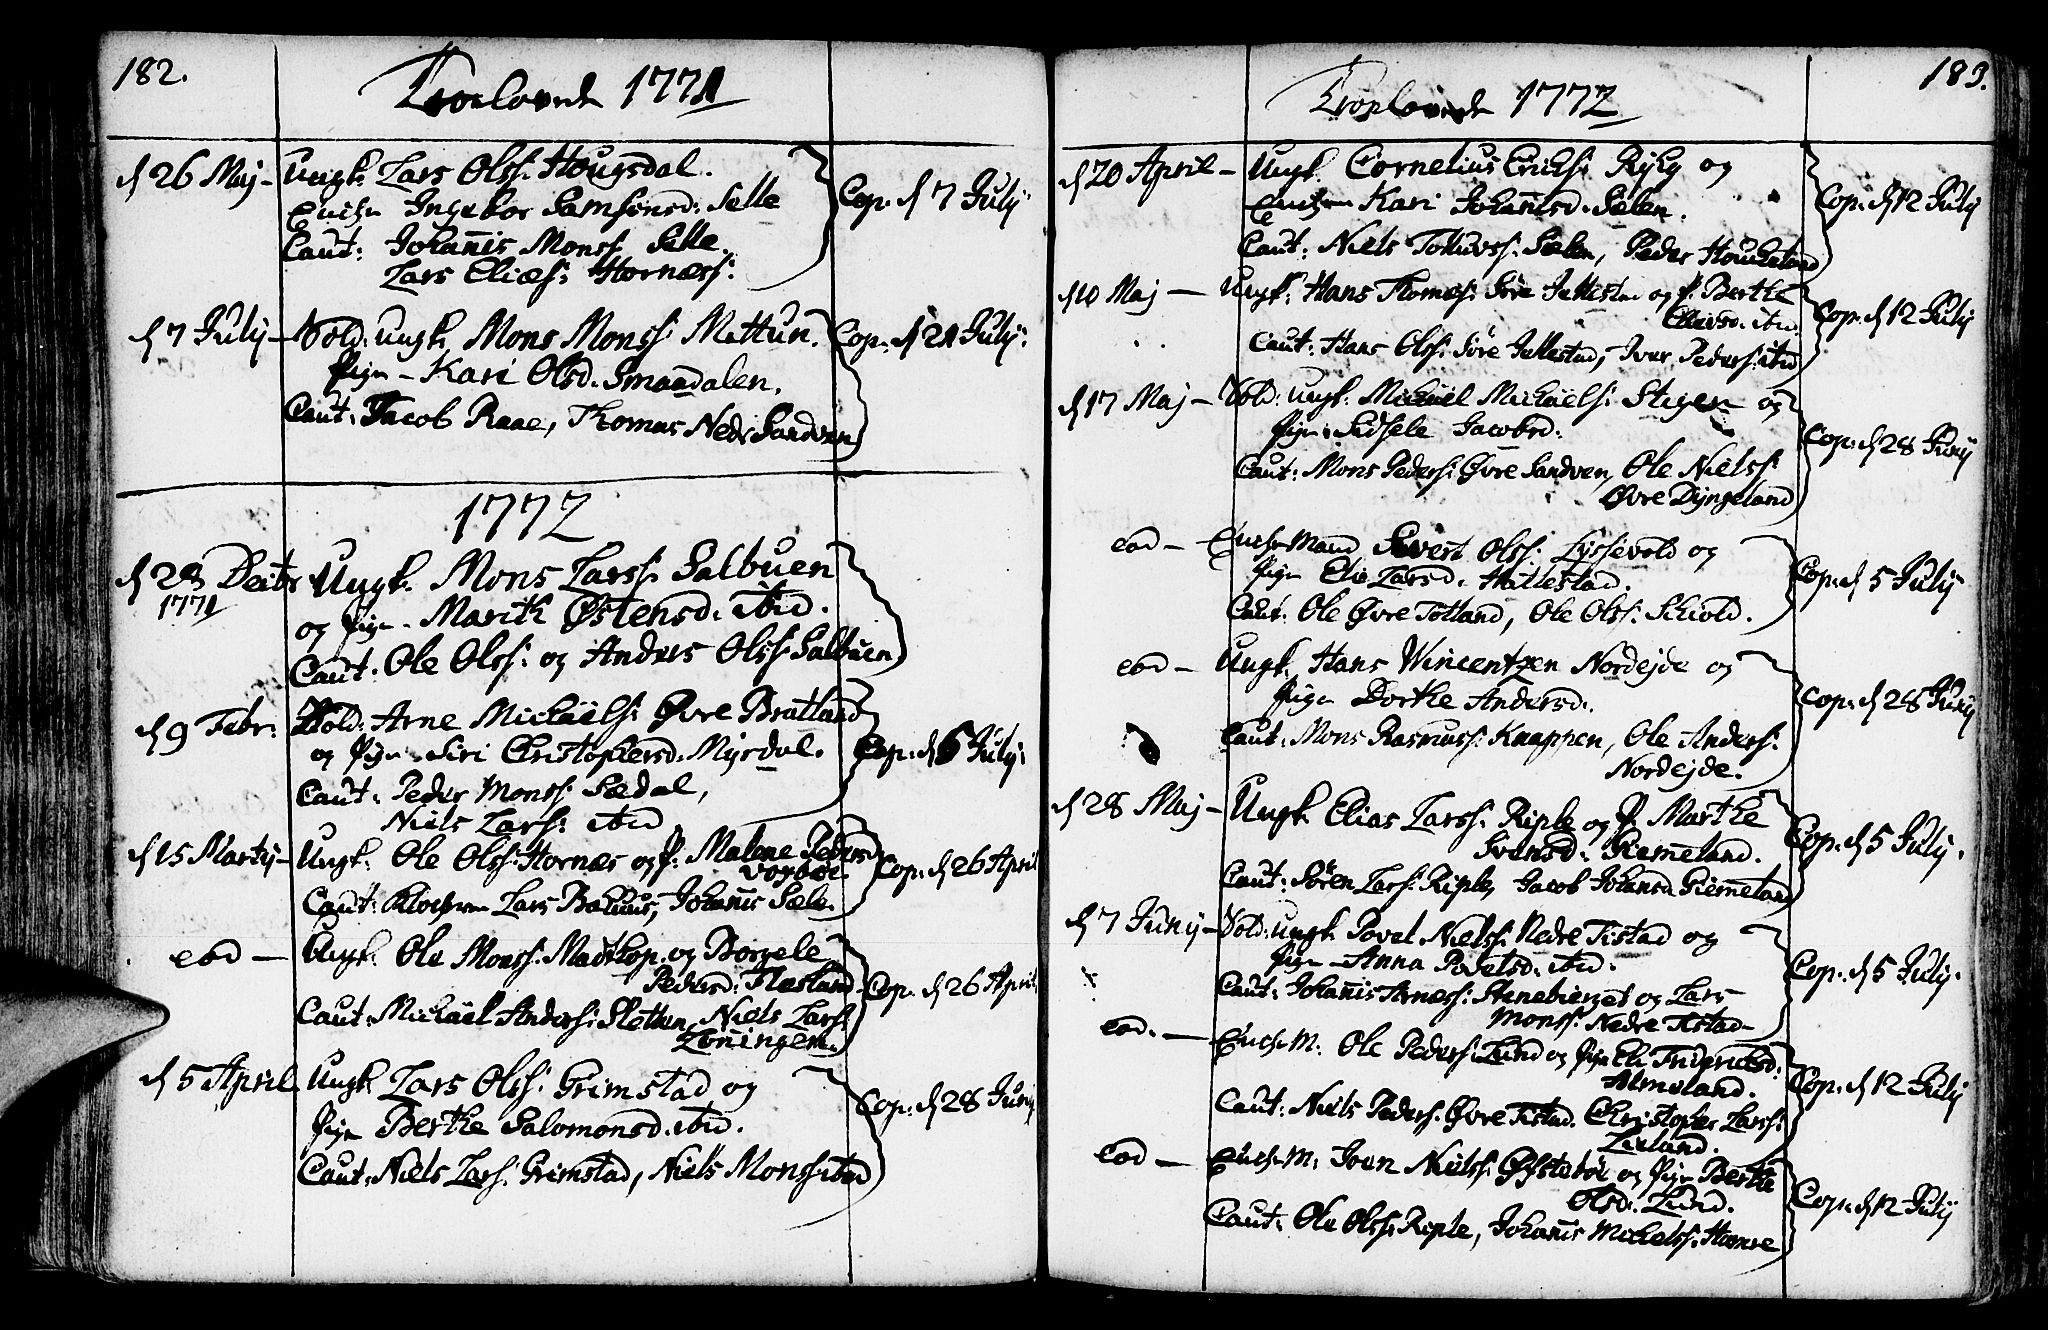 182.
Troelovede 1771
d 26 Maj - Ungk. Lars Olss: Hougsdal.
Enche Ingebor Samsonsd: Selle
Caut: Johannis Monss Selle.
Lars Eliæs: Hornæss:
Cop. d 7 July
d 7 July - Sold: ungk. Mons Monss: Mettun.
Pige - Kari Olsd. Smaadalen.
Caut: Jacob Raae, Thomas Nedr Sandven
Cop. d 21 July:
1772
d 28 Decbr 1771 Ungk. Mons Larss. Salbuen
og Pige - Marith Østensd. ibid.
Caut. Ole Olss: og Anders Olss Salbuen
d 9 Febr: Sold: Arne Michaëls: Øvre Bratland
og Pige Siri Christophersd. Myrdal.
Caut: Peder Monss: Sædal,
Niels Larss: ibid
Cop. d 5 July:
d 15 Marty - Ungk. Ole Olss: Hornæs og P: Malene Pedersd
Caut: Lars Johannis Sæle.
Cop: d 26 April
eod - Ungk. Ole Monss: Madtkop. og Borgele
Pedersd: Flæsland.
Caut: Michaël Anders: Sletten, Niels Larss:
Lønningen.
Cop. d 26 April
d 5 April Ungk Lars Olss: Grimstad og
Pige Berthe Salomonsd. ibid.
Caut: Niels Larss: Grimstad, Niels Monss ibid
Cop: d 28 Juny
183.
Troelovede 1772
d 20 April - Ungk. Cornelius Ericks: og
Enche Kari Johannisd. Sælen.
Caut: Niels Sælen, Peder Houkeland
Cop: d 12 July
d 10 Maj - Ungk: Hans Thomæs: Søre Jellestad og P. Berthe
ibid
Caut: Hans Olss: Søre Jellestad, Iver Peders: ibid
Cop: d 12 July
d 17 Maj - Sold: ungk. Michaël Michaëls: Stegen og
Pige Sidsele Jacobsd:
Caut: Mons Peders: Øvre Sandven, Ole Nielss:
Øvre Dyngeland
Cop: d 28 Juny
eod - Enche Mand Sivert Olss: Lyssevold og
Pige Eli Larsd. Hattlestad.
Caut: Ole Øvre Totland, Ole Olss: Schiold.
Cop: d 5 July
eod - Ungk. Hans Wincentzen Nordejde og
Pige Dorthe Andersd.
Caut: Mons Rasmuss: Knappen, Ole Anderss:
Nordejde.
Cop: d 28 Juny
d 28 Maj - Ungk Elias Larss: Riple og P. Marthe
Svensd: Giemmeland.
Caut: Søren Larss: Riple, Jacob Johans: Giemmeland
Cop: d 5 July.
d 7 Juny - Sold: ungk Povel Nielss: Nedre Tistad og
Pige - Anna Povelsd: ibid.
Caut: Johannis Arness: Stenebierget og Lars
Monss: Nedre Tistad -
Cop: d 5 July.
eod. - Enche M: Ole Peders: Lund og Pige Eli
Almeland.
Caut: Niels Peders: Øvre Tistad. Christopher Larss:
Cop: d 12 July
eod - Enche M: Joen Nielss: og Pige Berthe
Olsd: Lund.
Caut: Ole Olss: Riple, Johannis Michelss: Hamre
Cop: d 12 July